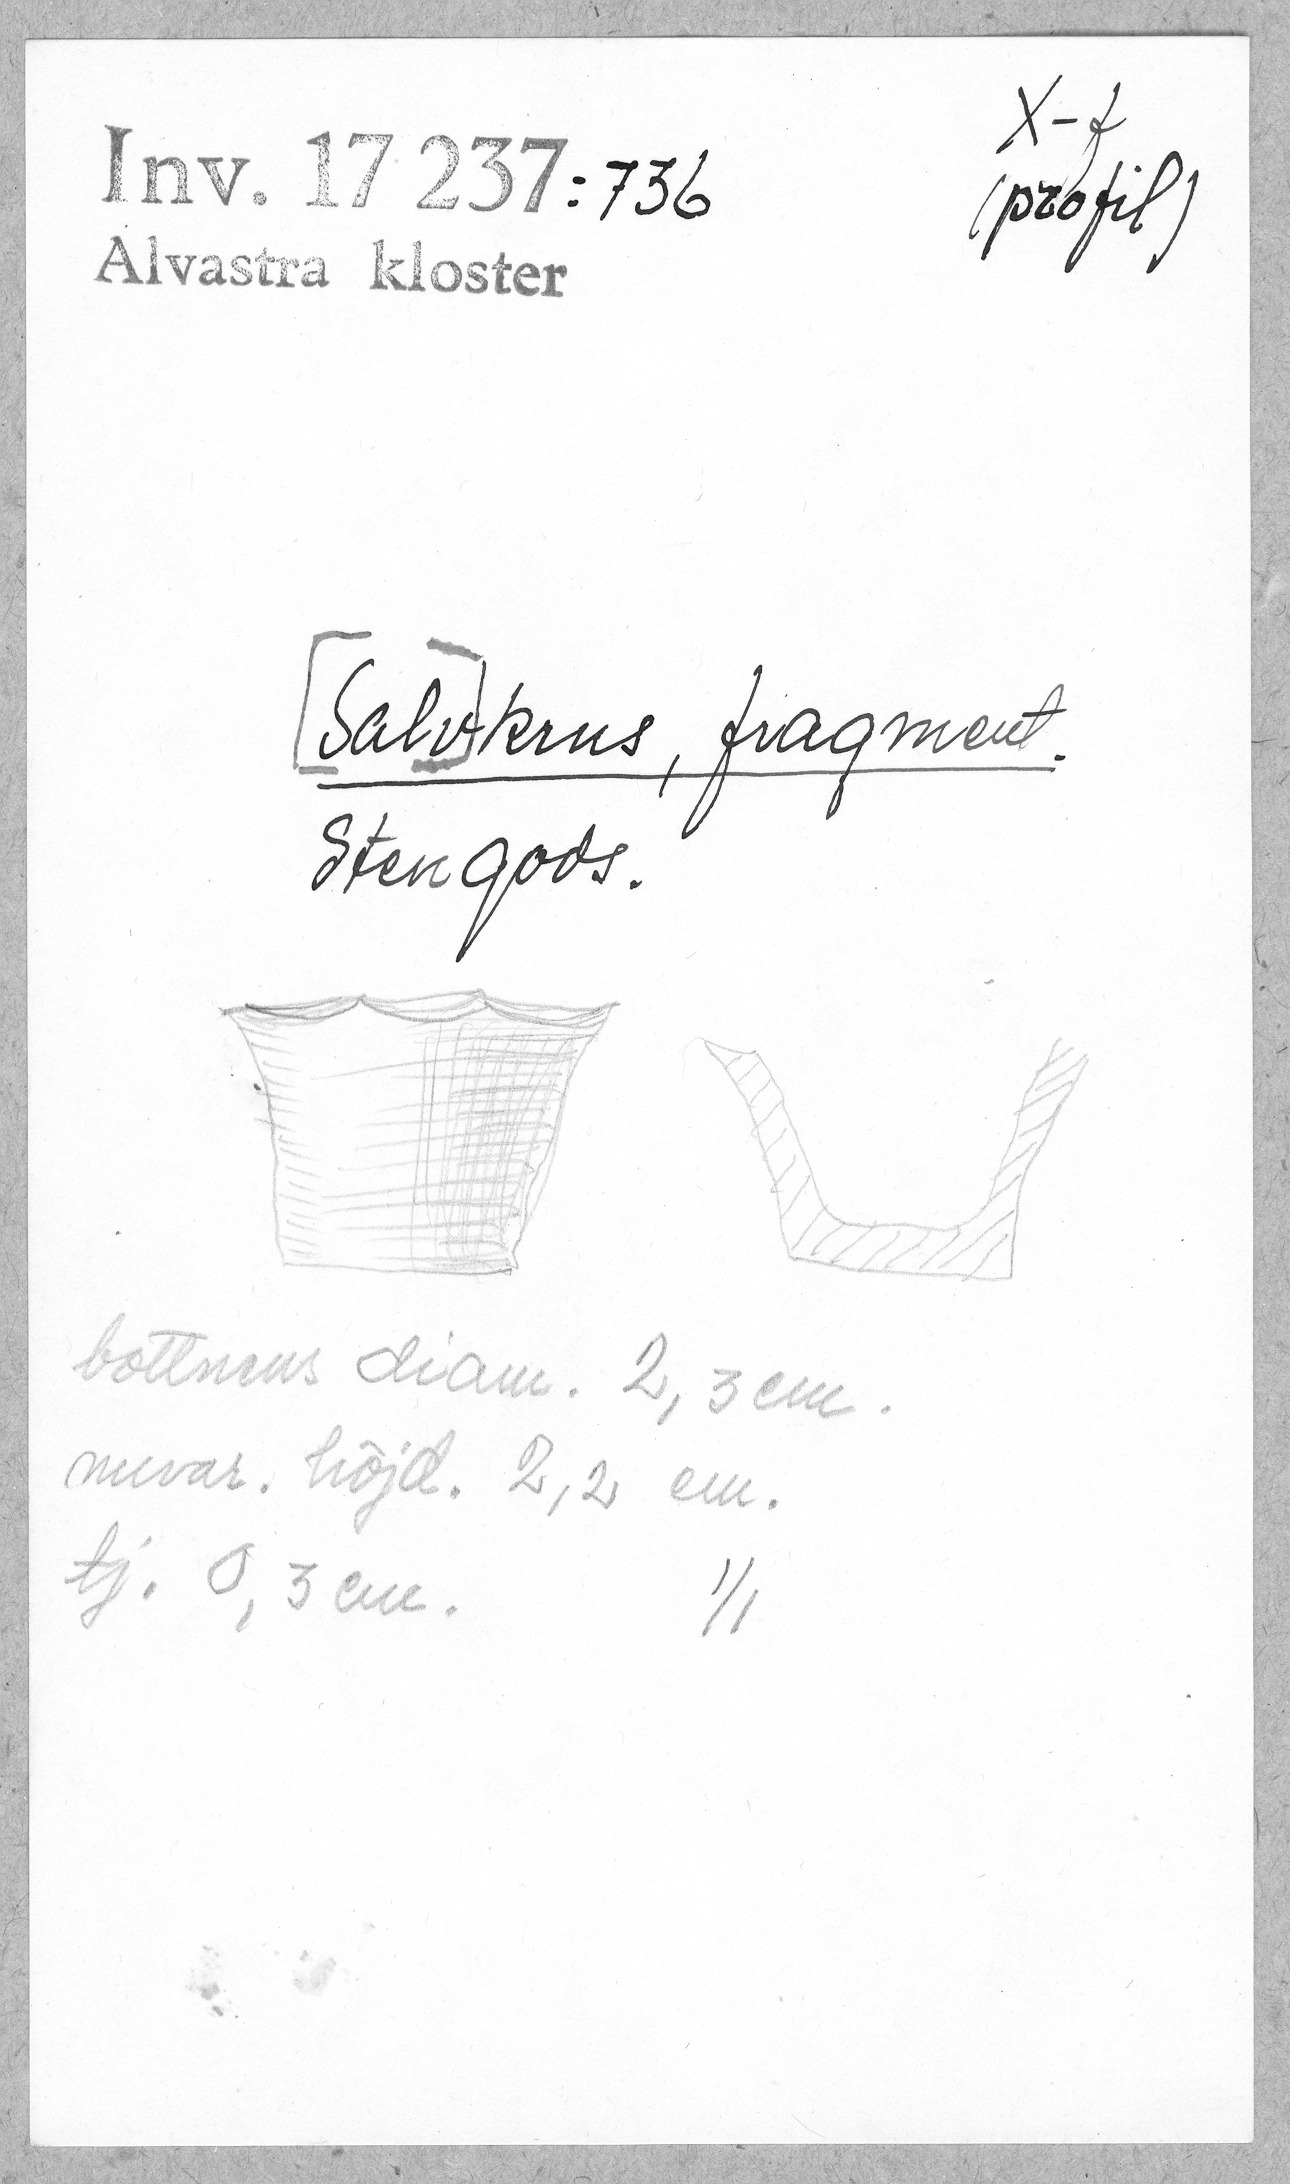 Inv. 17 237:736
Alvastra kloster
X-f
(profil)
[Salv]krus, fragment.
Stengods.
bottnens diam. 2,3 cm.
nuvar. höjd. 2,2 cm.
tj. 0,3 cm.
1/1